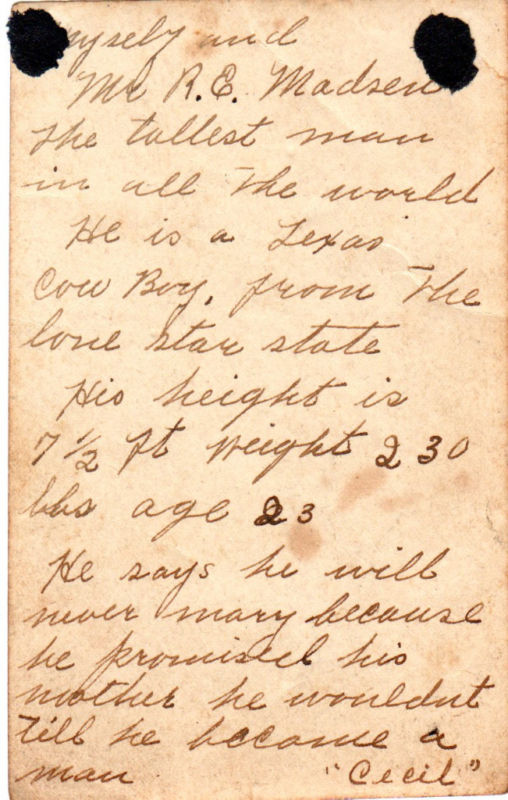 myself and
Mr R.E. Madsen
the tallest man
in all the world
He is a Texas
Cow Boy, from the
lone star state
His height is
7 1/2 ft weight 230
lbs age 23
He says he will
never mary because
he promised his
mother he wouldnt
till he became a
man "Cecil"